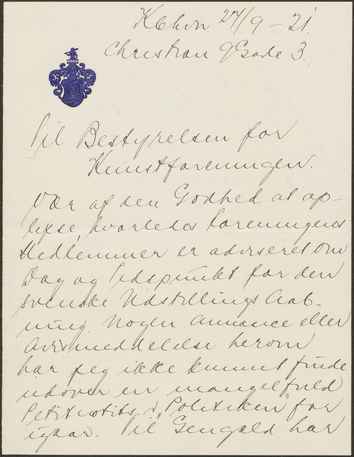 Kbhvn 24/9 - 21
Christian 9 Gade 3.
Til Bestyrelsen for
Kunstforeningen.
Vær af den Godhed at op-
lyse, hvorledes Foreningens
Medlemmer er adviseret om
Dag og Tidspunkt for den
svenske Udstillings Aab-
ning. Nogen Annonce eller
Avismeddelelse herom
har jeg ikke kunnet finde
udover en mangelfuld
Petitnotits i "Politiken" for
igaar. Til Gengæld har